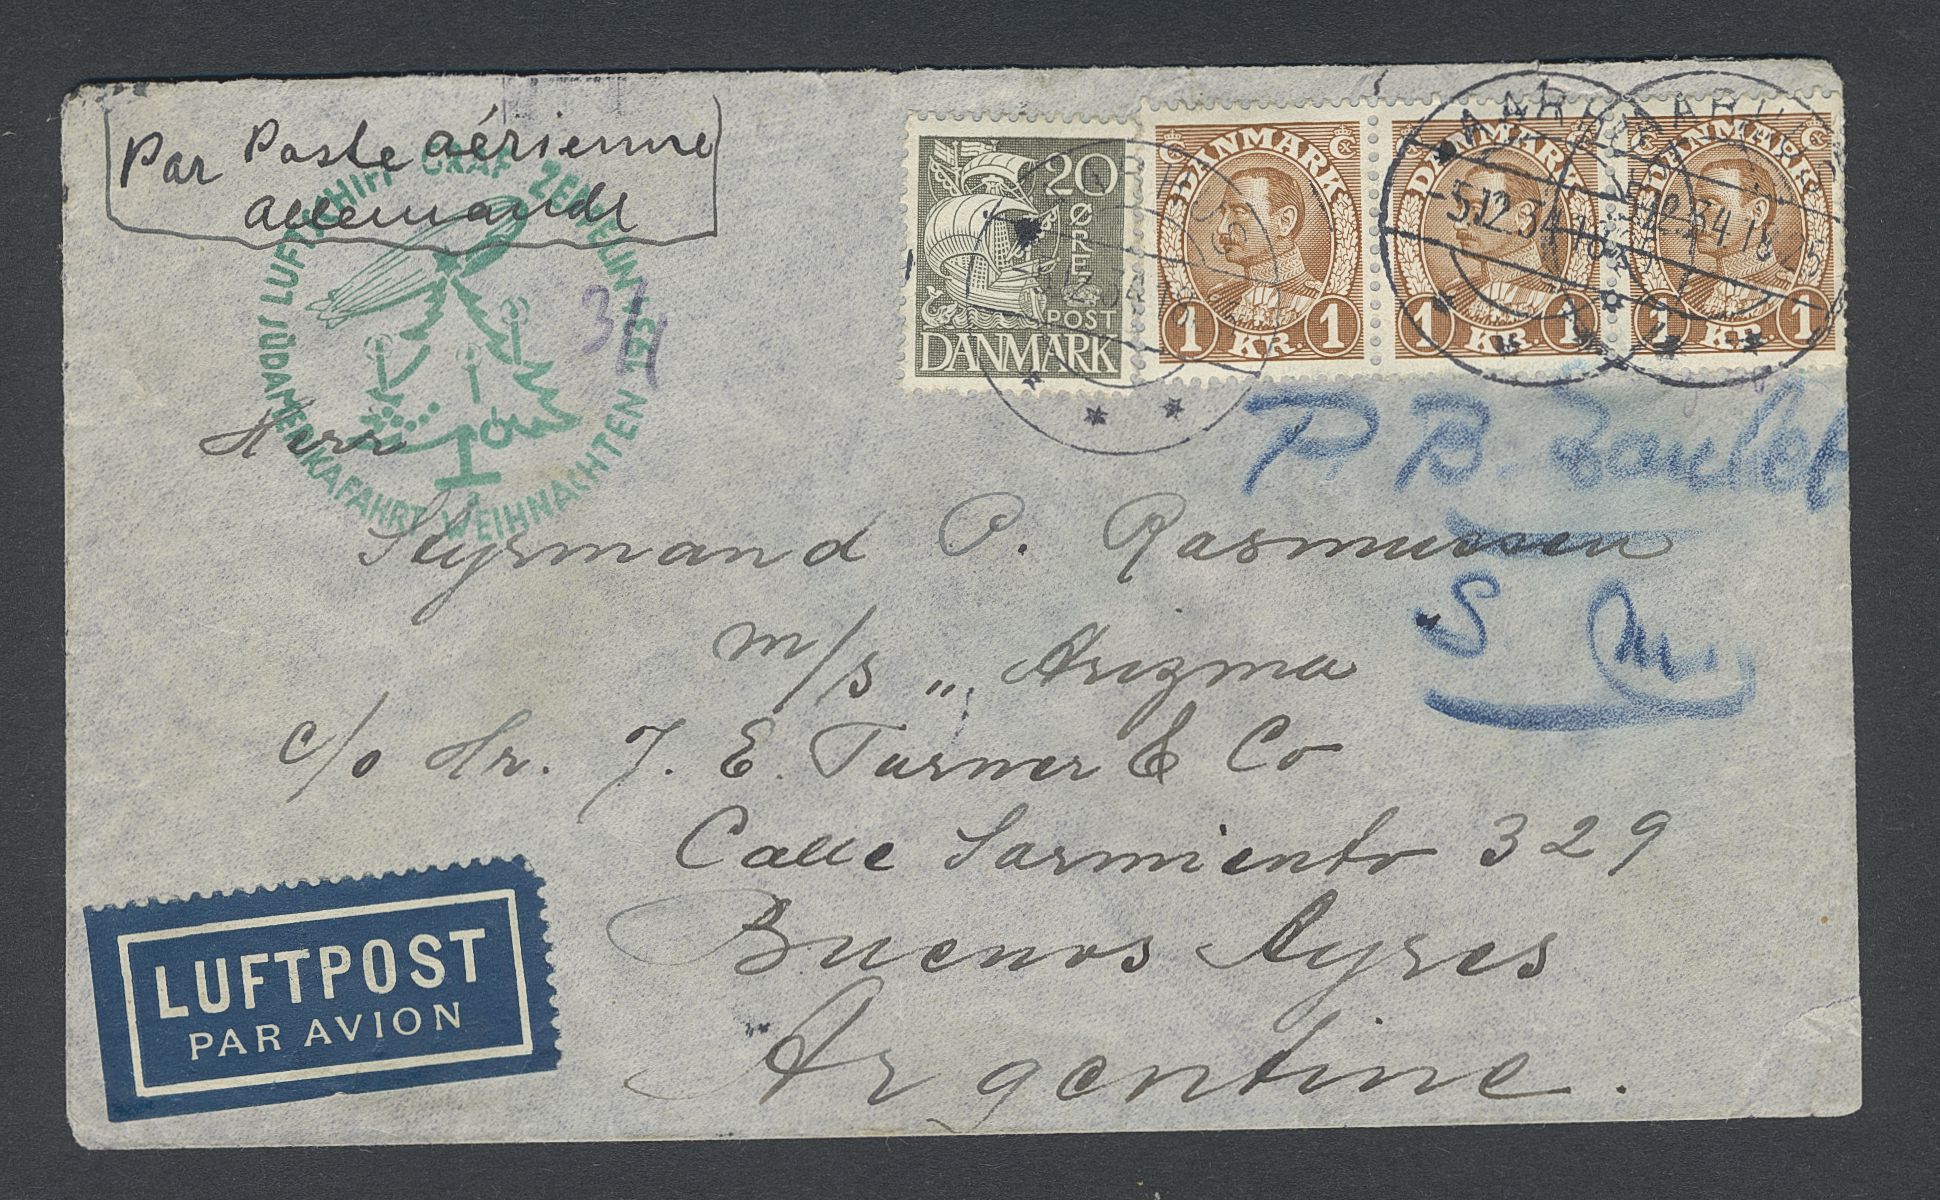 Par Poste aérienne
allemande
LUFTSCHIFF GRAF ZEPPELIN
SÜDAMERIKAFAHRT WEIHNACHTEN 1934
20
ØRE
POST
DANMARK
DANMARK
1 KR. 1
DANMARK
1 KR. 1
DANMARK
1 KR. 1
AARHUS
5.12.34 18
AARHUS
5.12.34 18
P. B.
S M.
Herr
Styrmand P. Rasmussen
m/s „ Arizma
c/o Hr. J. E. Turner & Co
Calle Sarmiento 329
Buenos Ayres
Argentine.
LUFTPOST
PAR AVION